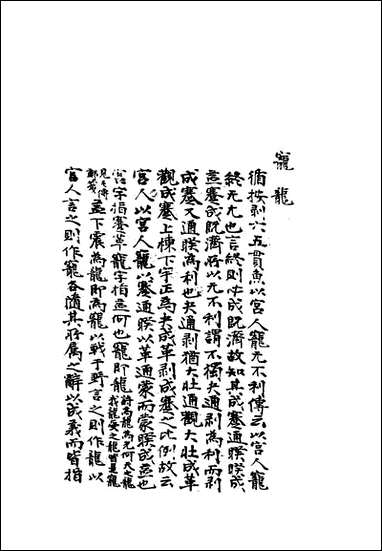 寵 龍
循按剥六五貫魚以宫人寵无不利傳云以宫人寵
終无尤也言終則必成既濟故知其成蹇通睽睽成
益蹇成既濟所以无不利謂不獨夬通剥為利而剥
成蹇又通睽為利也夬通剥猶大壯通觀大壯成革
觀成蹇上棟下宇正為夬成革剥成蹇之比例故云
宫人以宫人寵以蹇通睽以革通蒙而蒙睽成益也
宫字指蹇革寵字指益何也寵即龍 詩為龍為光何天之龍
我龍受之龍皆是寵
見毛傳
鄭箋 益下震為龍即為寵以戰于野言之則作龍以
宫人言之則作寵各隨其所屬之辭以成義而皆指